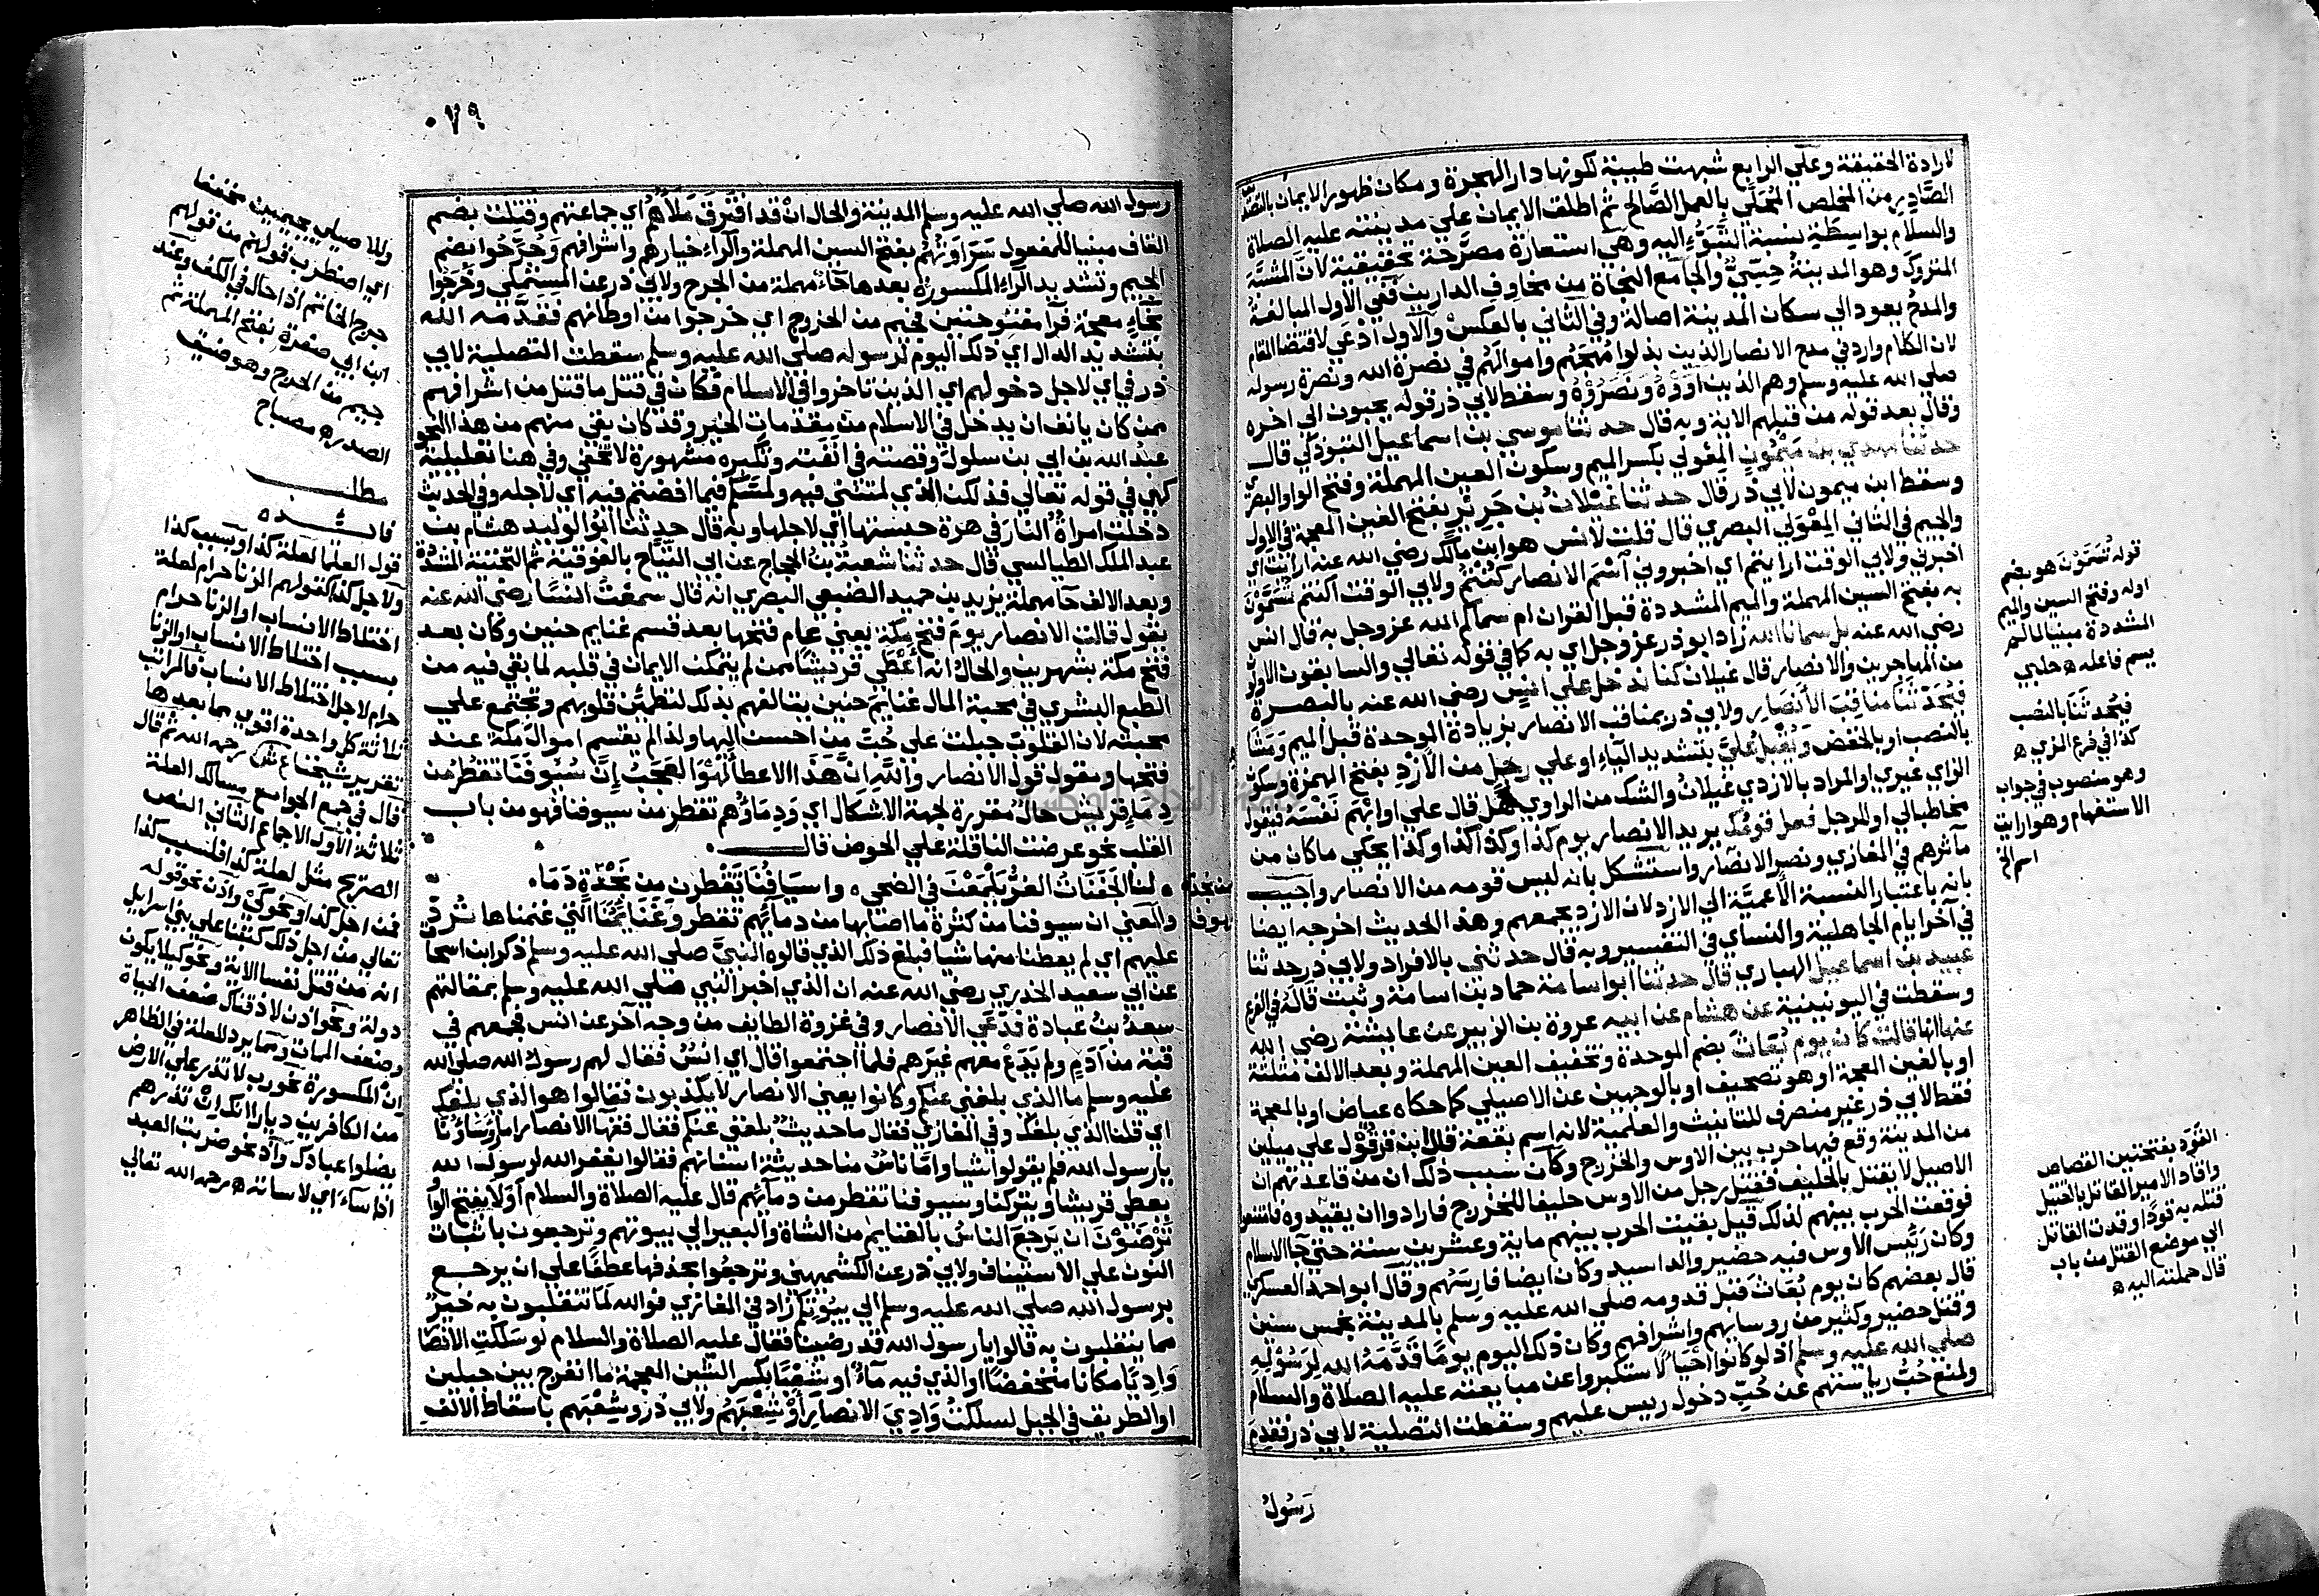 لارادة الحقيقة وعلي الرابع شبهت طيبة لكونها دار الهجرة ومكان ظهور الايمان بالتصد
الصَّادر من المخلص المُحَلَّي بالعمل الصَّالح ثم اطلق الايمان علي مدينته عليه الصلاة
والسلام بواسطة نسبة التَّبَوُّءِ اليه وهي استعارة مصرَّحة تحقيقية لان المشبَّه
المتروك وهو المدينة حِسِّيٌّ والجامع النجاة من مخاوف الدارين ففي الاول المبالغة
والمدح يعود الي سكان المدينة اصالة وفي الثاني بالعكس والاول ادْعَي لاقتضا المقام
لان الكلام وارد في مدح الانصار الذين بذلوا مُهجَهُم واموالَهُم في نصرة الله ونصرة رسوله
صلي الله عليه وسلم وهم الذين اوَوْهُ ونصَرُوْهُ وسقط لابي ذر قوله يحبون الي اخره
وقال بعد قوله من قبلهم الاية وبه قال حدثنا موسي بن اسماعيل التبوذكي قال
حدثنا مهدي بن مَيْمُونٍ المِعْولي بكسر الميم وسكون العين المهملة وفتح الواو البصري
وسقط ابن ميمون لابي ذر قال حدثنا غيْلانُ بن جَرِيْرٍ بفتح الغين المعجمة في الاول
والجيم في الثاني المِعْوَلي البصري قال قلت لانس هو ابن مالك رضي الله عنه ارايت اي
اخبرني ولابي الوقت ارايتم اي اخبروني اسْمَ الانصار كُنْتُمْ ولابي الوقت اكنتم تُسَمَّوْنَ
به بفتح السين المهملة والميم المشددة قبل القران ام سماكم الله عز وجل به قال انس
رضي الله عنه بل سمانا الله زاد ابو ذر عز وجل اي به كما في قوله تعالي والسابقون الاولو
من المهاجرين والانصار قال غيلان كنا ندخل علي انسٍ رضي الله عنه بالبصرة
فيُحَدِّثَنَا مناقِبَ الانصار ولابي ذر بمناقب الانصار بزيادة الموحدة قبل الميم ومَشَا
بالنصب او بالخفض وَيُقْبِلُ عليَّ بتشديد الياء او علي رجلٍ من الأزْدِ بفتح الهمزة وسكو
الزاي غيري او المراد بالازدي غيلان والشك من الراوي هل قال علي او ابْهَمَ نَفْسَه فيقول
مخاطبا لي او للرجل فعل قومُك يريد الانصار يوم كذا وكذا كذا وكذا يحكي ما كان من
مآثرهم في المغازي ونصر الانصار واستشكل بانه ليس قومه من الانصار واجيب
بانه باعتبار النسبة الأعميَّة الي الازد لان الازد يجمعهم وهذا الحديث اخرجه ايضا
في آخر ايام الجاهلية والنساي في التفسير وبه قال حدثني بالافراد ولابي ذر حدثنا
عبيد بن اسماعيل الهباري قال حدثنا ابو اسامة حماد بن اسامة وثبت قاله في الفرع
وسقطت في اليونينية عن هشام عن ابيه عروة بن الزبير عن عايشة رضي الله
عنها انها قالت كان يوم بُعَاثَ بضم الموحدة وتخفيف العين المهملة وبعد الالف مثلثة
او بالغين المعجمة او هو تصحيف او بالوجهين عن الاصيلي كما حكاه عياض او بالمعجمة
فقط لابي ذر غير منصرف للتانيث والعلمية لانه اسم بقعة قال ابن قرقول علي ميلين
من المدينة وقع فيها حرب بين الاوس والخزرج وكان سبب ذلك ان من قاعدتهم ان
الاصيل لا يقتل بالحليف فقتل رجل من الاوس حليفا للخزرج فارادوا ان يقيدوه فامتنعوا
فوقعت الحرب بينهم لذلك قيل بقيت الحرب بينهم ماية وعشرين سنة حتي جا الاسلام
وكان رَئِيس الاوس فيه حضير والد اسيد وكان ايضا فارسَهُم وقال ابو احمد العسكري
قال بعضهم كان يوم بُعَاث قبل قدومه صلي الله عليه وسلم بالمدينة بخمس سنين
وقتل حضير وكثير من روسايهم واشرافهم وكان ذلك اليوم يومًا قَدَّمَهُ اللهُ لِرَسُوْلِهِ
صلي الله عليه وسلم اذ لو كانوا احْيَا لاستكبروا عن مبايعته عليه الصلاة والسلام
ولمنع حُبُّ رياستهم عن حُبِّ دخول رييس عليهم وسقطت التصلية لابي ذر فقدِمَ
رَسُولُ
قوله تُسَمَّوْنَ هو بضم
اوله وفتح السين والميم
المشددة مبنيا لما لم
يسم فاعله ه حلبي
فيُحدثَنَا بالنصب
كذا في فرع المزي ه
وهو منصوب في جواب
الاستفهام وهو ارايت
اسم الخ
القَوَد بفتحتين القصاص
واقاد الامير القاتل بالقتيل
قتله به قودًا وقدت القاتل
الي موضع القتل من باب
قال حملته اليه ه
٠٧٩
رسول الله صلي الله عليه وسلم المدينة والحال انْ قد افْتَرَقَ مَلَأُهُمْ اي جماعتهم وقُتِلَت بضم
القاف مبنيا للمفعول سَرَاوَتُهُمْ بفتح السين المهملة والرَّاء خيارهم واشرافهم وَجُرِّحُوا بضم
الجيم وتشديد الرَّاء المكسورة بعدها حَاء مهملة من الجرح ولابي ذر عن المستملي وخَرَجُوا
بخاءٍ معجمة فرا مفتوحتين فجيم من الخروج اي خرجوا من اوطانهم فقَدَّمَه الله
بتشديد الدال اي ذلك اليوم لرسوله صلي الله عليه وسلم سقطت التصلية لابي
ذر في اي لاجل دخولهم اي الذين تاخروا في الاسلام فكان في قتل ما قتل من اشرافهم
ممن كان يانف ان يدخل في الاسلام من مقدمات الخير وقد كان بقي منهم من هذا النحو
عبد الله بن ابي بن سلول وقصته في انفَته وتكبره مشهورة لا تخفي وفي هنا تعليلية
كهي في قوله تعالي فذلكن الذي لمتنني فيه ولمسَّكم فيما افضتم فيه اي لاجله وفي الحديث
دخلت امراة النار في هرة حبستها اي لاجلها وبه قال حدثنا ابُو الوليد هشام بن
عبد الملك الطيالسي قال حدثنا شعبة بن الحجاج عن ابي التَّيَّاح بالفوقية ثم التحتية المشددة
وبعد الالف حا مهملة يزيد بن حميد الضبعي البصري انه قال سمعْتُ انسًا رضي الله عنه
يقول قالت الانصار يومَ فتح مكة يعني عام فتحها بعد قسم غنايم حنين وكان بعد
فتح مكة بشهرين والحال انه أَعْطَي قريشًا ممن لم يتمكن الايمان في قلبه لما بقي فيه من
الطبع البشري في محبة المال غنايم حنين يتالفهم بذلك لتطمئن قلوبهم وتجتمع علي
محبته لان القلوب جبلت علي حُبّ من احسن اليها ولذا لم يقسم اموال مكة عند
فتحها ومقول قول الانصار واللهِ انَّ هَذا الاعطا لهُوَ العَجَبُ إنَّ سُيُوفَنَا تَقْطُر من
دِمَاءِ قريش حال مقررة لجهة الاشكال اي ودِمَاؤُهم تقطر من سيوفنا فهو من باب
القلب نحو عرضت الناقة علي الحوض قال
لنا الجَفَنَاتُ الغُرُّ يَلْمَعْنَ في الضحي ه واسيَافُنَا يَقْطُرنَ من نَجْدَةٍ دَمَا
والمعني ان سيوفنا من كثرة ما اصابها من دمائهم تقطر وَغَنَايمُنَا التي غنمناها تُرَدُّ
عليهم اي لم يعطنا منها شيا فبلغ ذلك الذي قالوه النبيَّ صلي الله عليه وسلم ذكر ابن اسحا
عن ابي سعيد الخدري رضي الله عنه ان الذي اخبر النبي صلي الله عليه وسلم بمقالتهم
سعدُ بنُ عبادة فدَعَي الانصار وفي غزوة الطايف من وجه اخر عن انس فجمعهم في
قبة من آدَمٍ ولم يَدَع معهم غيرَهم فلما اجتمعوا قال اي انسٌ فقال لهم رسول الله صلي الله
عليه وسلم ما الذي بلغني عنكم وكانوا يعني الانصار لا يكذبون فقالوا هو الذي بلغك
اي قلنا الذي بلغك وفي المغازي فقال ما حديث بلغني عنكم فقال فقها الانصار اما رُؤَسَاؤُنَا
يا رسول الله فلم يقولوا شيا وامَّا ناسٌ منا حديثة اسنانهم فقالوا يغفر الله لرسول الله
يعطي قريشا ويتركنا وسيوفنا تقطر من دمآئهم قال عليه الصلاة والسلام أَوَلا بفتح الواو
تَرْضَوْنَ ان يَرجعَ الناسُ بالغنايم من الشاة والبعير الي بيوتهم وترجعون باثبات
النون علي الاستيناف ولابي ذر عن الكشميهني وترجعُوا بحذفها عطفًا علي ان يرجع
برسول الله صلي الله عليه وسلم الي بيُوتِكم زاد في المغازي فوالله لَمَا تنقلبون به خيرٌ
مما ينقلبون به قالوا يا رسول الله قد رضينا فقال عليه الصلاة والسلام لو سَلكتِ الانصا
وَادِيًا مكانا منخفضًا او الذي فيه مآءٌ او شِعْبًا بكسر الشين المعجمة ما انفرج بين جبلين
او الطريق في الجبل لسلكتُ وَادِيَ الانصار أوْ شِعْبَهُم ولابي ذر وشِعْبَهم باسقاط الالف
وللاصيلي بجيمين مخففا
اي اضطرب قولهم من قولهم
جرج الخاتم اذا جال في الكف وعند
ابن ابي صفرة بفتح المهملة ثم
جيم من الحرج وهو ضيق
الصدر ه مصباح
مطلب
فائدة
قول العلما لعلة كذا او بسبب كذا
ولاجل كذا كقولهم الزنا حرام لعلة
اختلاط الانساب او الزنا حرام
بسبب اختلاط الانساب او الزنا
حرام لاجل اختلاط الانساب فالمراتب
ثلاثة كل واحدة اقوي مما بعدها
تقرير شيخنا ع ش رحمه الله ثم قال
قال في جمع الجوامع مسالك العلة
ثلاثة الأول الاجماع الثاني النص
الصريح مثل لعلة كذا فلسبب كذا
فمن اجل كذا ونحو كَيْ واذن نحو قوله
تعالي من اجل ذلك كتبنا علي بني اسرايل
انه من قتل نفسا الاية ونحو كيلا يكون
دولة ونحو اذن لاذقناك ضعف الحياة
وضعف الممات ومما يرد للعلة في الظاهر
إنَّ المكسورة نحو رب لا تذر علي الارض
من الكافرين ديارا انك ان تذرهم
يضلوا عبادك واذ نحو ضربت العبد
اذ اساءَ اي لاساته ه رحمه الله تعالي